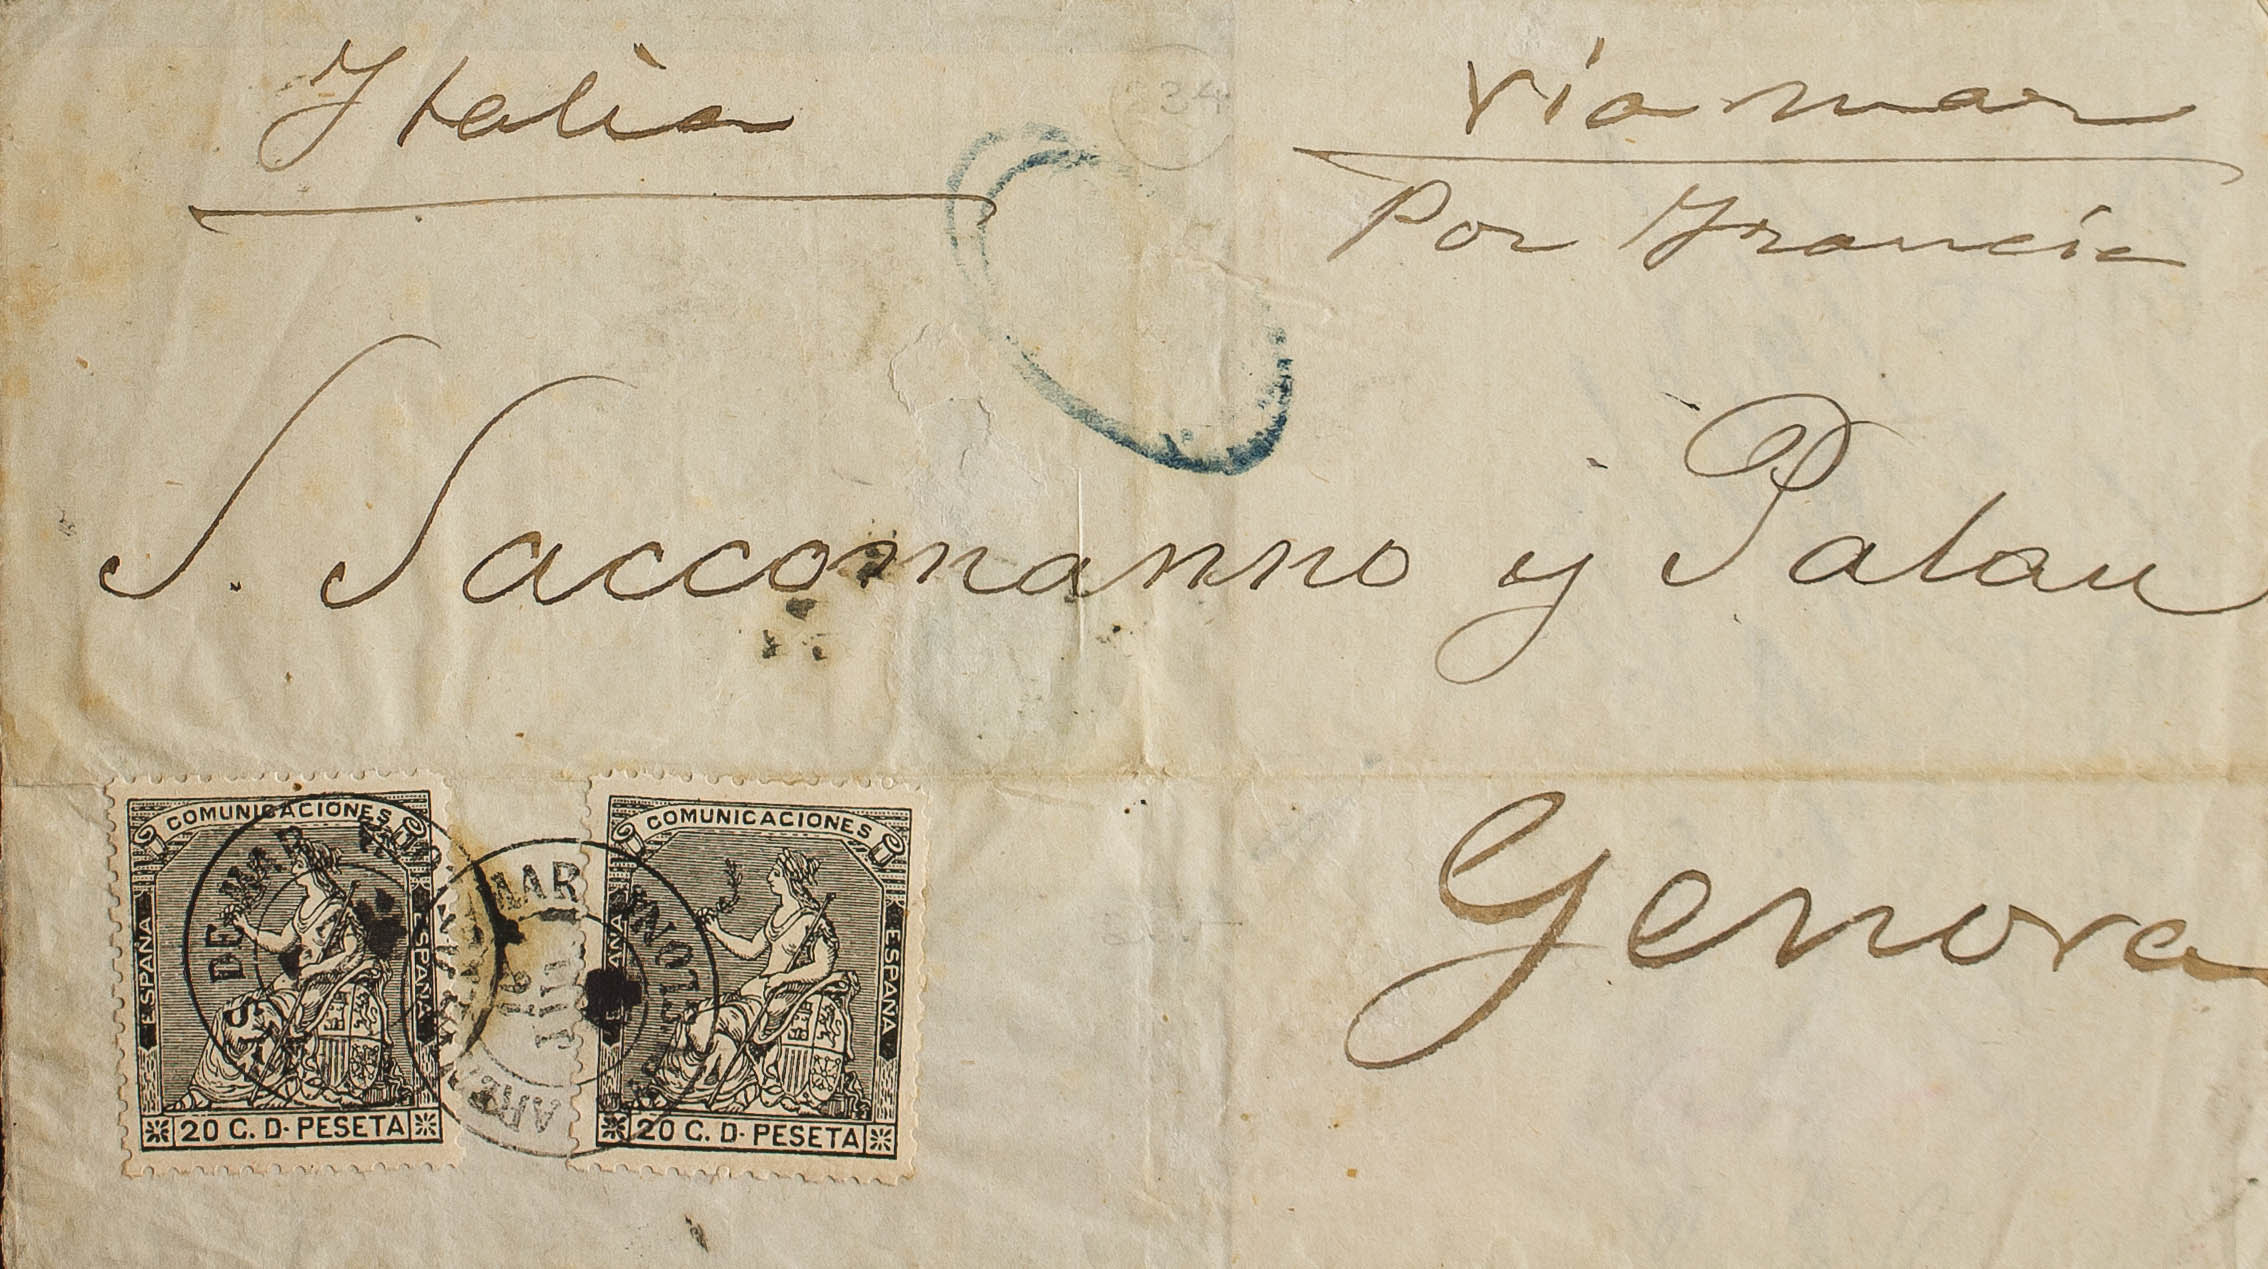 Italia
Via mar
Por Francia
34
S. Saccomanno y Palau
Genova
COMUNICACIONES
ESPAÑA
ESPAÑA
20 C. D. PESETA
COMUNICACIONES
ESPAÑA
20 C. D. PESETA
DE MAR
MAR
16
JUL
ARE